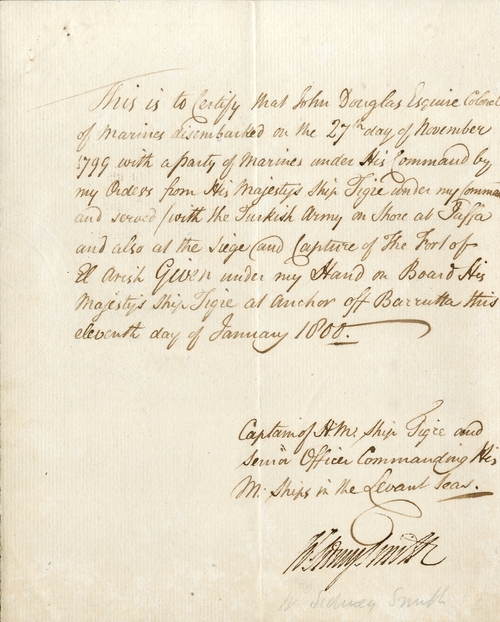 This is to Certify that John Douglas Esquire Colonel
of Marines disembarked on the 27th day of November
1799 with a party of Marines under His Command by
my Orders from His Majestys Ship Tigre under my Comman
and served (with the Turkish Army on Shore at Jaffa
and also at the Siege (and Capture of The Fort of
El Arish Given under my Hand on Board His
Majestys Ship Tigre at Anchor off Barrutta this
eleventh day of January 1800.
Captain of H.Ms. Ship Tigre and
Senior Officer Commanding His
M. Ships in the Levant Seas.
WSidneySmith
W Sidney Smith